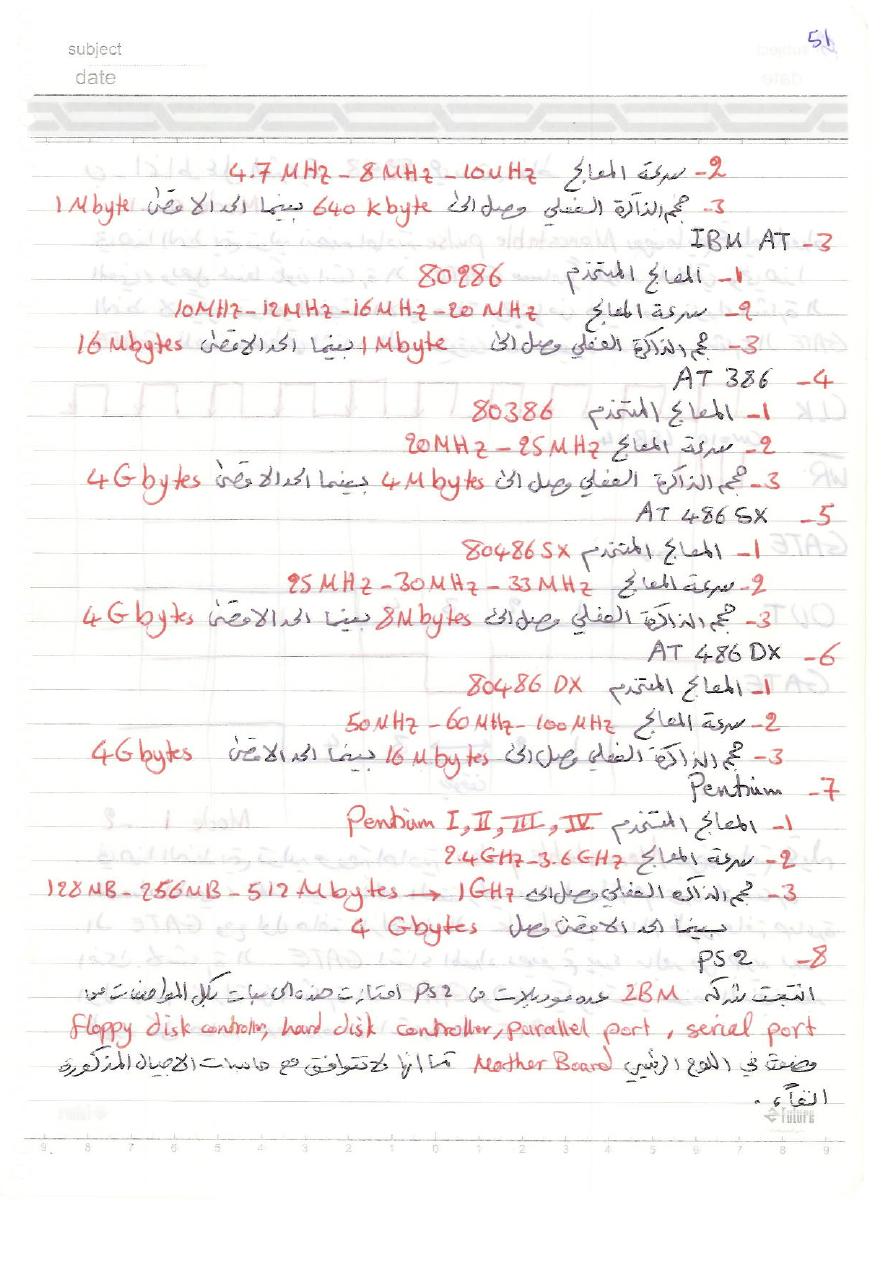 51
subject
date
2- سرعة المعالج 4.7 MHz - 8 MHz - 10 MHz
3- حجم الذاكرة الفعلي وصل الى 640 Kbyte بينما الحد الاقصى 1 Mbyte
3- IBM AT
1- المعالج المستخدم 80286
2- سرعة المعالج 10MHz - 12MHz - 16MHz - 20 MHz
3- حجم الذاكرة الفعلي وصل الى 1 Mbyte بينما الحد الاقصى 16 Mbytes
4- AT 386
1- المعالج المستخدم 80386
2- سرعة المعالج 20MHz - 25MHz
3- حجم الذاكرة الفعلي وصل الى 4 Mbytes بينما الحد الاقصى 4 Gbytes
5- AT 486 SX
1- المعالج المستخدم 80486 SX
2- سرعة المعالج 25 MHz - 30MHz - 33MHz
3- حجم الذاكرة الفعلي وصل الى 8Mbytes بينما الحد الاقصى 4 Gbytes
6- AT 486 DX
1- المعالج المستخدم 80486 DX
2- سرعة المعالج 50MHz - 60MHz - 100MHz
3- حجم الذاكرة الفعلي وصل الى 16 Mbytes بينما الحد الاقصى 4Gbytes
7- Pentium
1- المعالج المستخدم Pentium I, II, III, IV
2- سرعة المعالج 2.4GHz - 3.6GHz
3- حجم الذاكرة الفعلي وصل الى 128MB - 256MB - 512 Mbytes → 1GHz
بينما الحد الاقصى وصل 4 Gbytes
8- PS2
انتجت شركة IBM عدة موديلات من PS2 امتازت هذه الحاسبات بكل المواصفات من
floppy disk controller, hard disk controller, parallel port, serial port
وضعت في اللوح الرئيسي Mother Board كما انها لا تتوافق مع حاسبات الاجيال المذكورة
انفاً.
Future
9 8 7 6 5 4 3 2 1 0 1 2 3 4 5 6 7 8 9